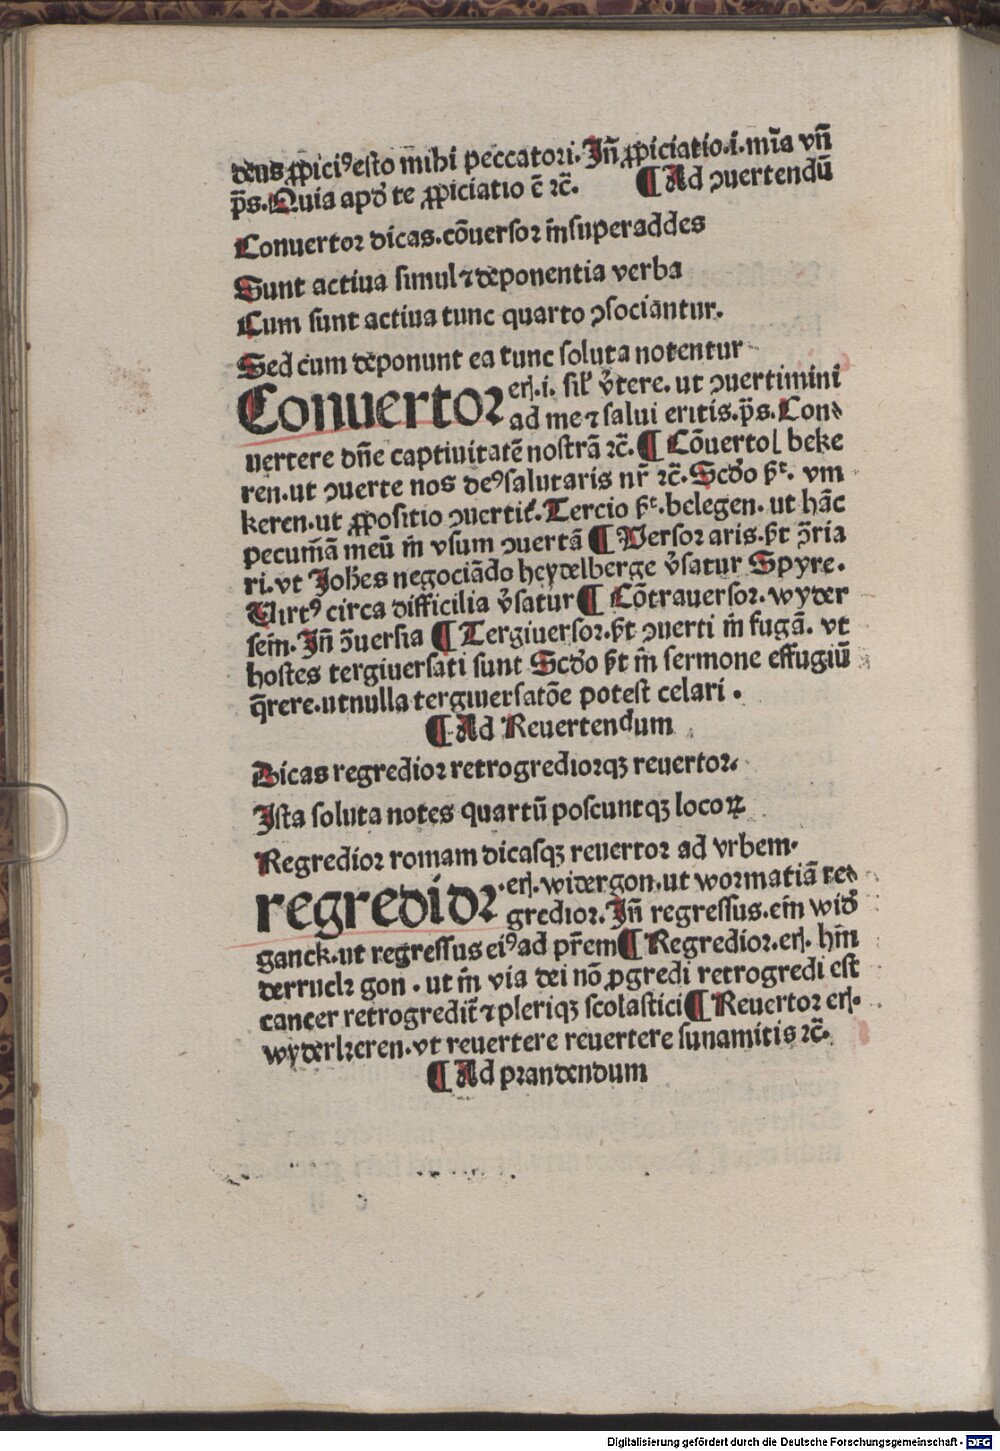 deus ꝓpiciꝰ esto mihi peccatori. Jñ ꝓpiciatio .i. mīa vñ
p̄s. Quia apd̕ te ꝓpiciatio ē ⁊c̄. ¶ Ad ꝯuertendū
Conuertor dicas. cōuersor īnsuperaddes
Sunt actiua simul ⁊ deponentia verba
Cum sunt actiua tunc quarto ꝯsociantur.
Sed cum deponunt ea tunc soluta notentur
Conuertor erꝭ. i. sil̕ v̕tere. ut ꝯuertimini
ad me ⁊ salui eritis. p̄s. Con⸗
uertere dn̄e captiuitatē nostrā ⁊c̄. ¶ Cōuertol beke
ren. ut ꝯuerte nos deꝰ salutaris nr̄ ⁊c̄. Scd̕o p̄t. vm
keren. ut ꝓpositio ꝯuertit̕. Tercio p̄t. belegen. ut hāc
pecum̄ā meū īn vsum ꝯuertā ¶ Versor aris. p̄t ꝯ̄ria
ri. vt Joh̄es negociādo heydelberge v̕satur Spyre.
Uirtꝰ circa difficilia v̕satur ¶ Cōtrauersor. wyder
sem̄. Jñ ꝯ̄uersia ¶ Tergiuersor. p̄t ꝯuerti īn fugā. vt
hostes tergiuersati sunt Scd̕o p̄t īn sermone effugiū
q̄rere. ut nulla tergiuersatōe potest celari.
¶ Ad Reuertendum
Dicas regredior retrogrediorqꝫ reuertor.
Jsta soluta notes quartū poscuntqꝫ locoꝝ
Regredior romam dicasqꝫ reuertor ad vrbem.
regredior . erꝭ. widergon. ut wormatiā re⸗
gredior. Jñ regressus. ein̄ wid̕
ganck. ut regressus eiꝰ ad pr̄em ¶ Regredior. erꝭ. hīn
derruck gon. ut īn via dei nō ꝓgredi retrogredi est
cancer retrogredit̄ ⁊ pleriqꝫ scolastici ¶ Reuertor erꝭ.
wyderkeren. vt reuertere reuertere sunamitis ⁊c̄.
¶ Ad prandendum
Digitalisierung gefördert durch die Deutsche Forschungsgemeinschaft - DFG